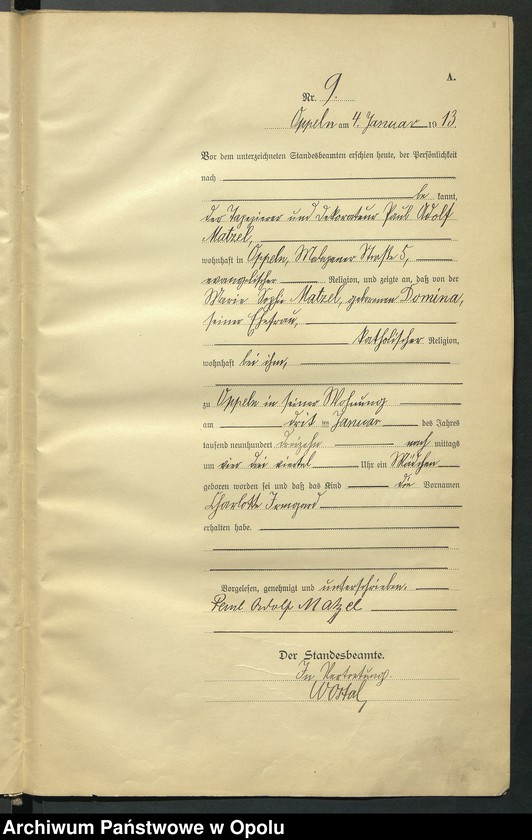 A.
Nr. 9.
Oppeln am 4. Januar 1913.
Vor dem unterzeichneten Standesbeamten erschien heute, der Persönlichkeit
nach
be kannt,
der Tapezierer und Dekorateur Paul Adolf
Matzel,
wohnhaft in Oppeln, Malapaner Straße 5,
evangelischer Religion, und zeigte an, daß von der
Marie Sophie Matzel, geborenen Domina,
seiner Ehefrau,
katholischer Religion,
wohnhaft bei ihm,
zu Oppeln in seiner Wohnung
am dritten Januar des Jahres
tausend neunhundert dreizehn nach mittags
um vier drei viertel Uhr ein Mädchen
geboren worden sei und daß das Kind die Vornamen
Charlotte Irmgard
erhalten habe.
Vorgelesen, genehmigt und unterschrieben.
Paul Adolf Matzel
Der Standesbeamte.
In Vertretung.
Wostal
Archiwum Państwowe w Opolu